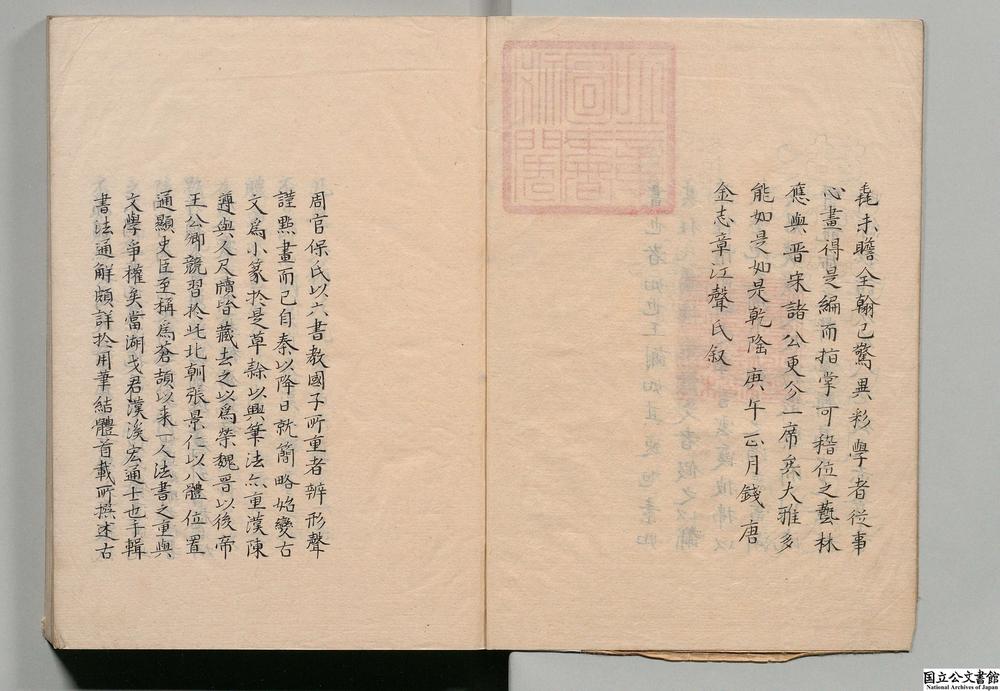 毫未瞻全翰已驚異彩學者從事
心畫得是編而指掌可稽位之藝林
應與晋宋諸公更分一席矣大雅多
能如是如是乾隆庚午正月錢唐
金志章江聲氏叙
周官保氏以六書教國子所重者辨形聲
謹㸃畫而已自秦以降日就簡略始變古
文為小篆於是草隸以興筆法亦重漢陳
遵與人尺牘皆藏去之以為榮魏晋以後帝
王公卿競習於此北朝張景仁以八體位置
通顯史臣至稱為倉頡以来一人法書之重與
文學爭權矣當湖戈君漢溪宏通士也手輯
書法通解頗詳於用筆結體首載所撰述古
国立公文書館
National Archives of Japan